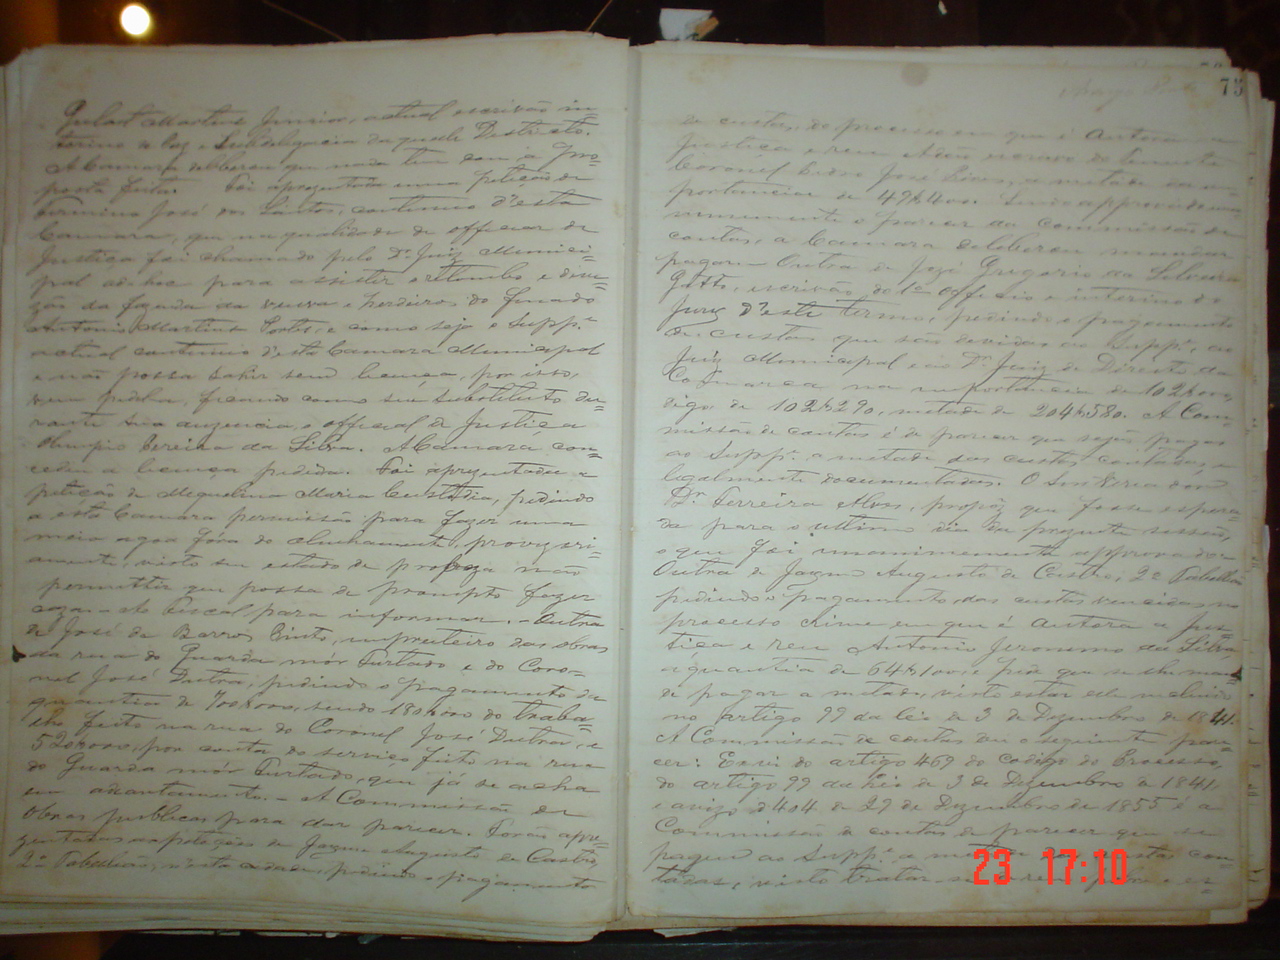 Gulart Martins Junior, actual escrivão in-
terino de Paz e Subdelegacia daquelle Districto.
A Camara deliberou que nada tem com a pro-
posta feita. Foi apresentada uma petição de
Firmino José dos Santos, continuo d'esta
Camara, que na qualidade de official de
Justiça foi chamado pelo Dr. Juiz Munici-
pal ad-hoc para assistir o tilhmbo e divi-
zão da fazenda da viuva e herdeiros do finado
Antonio Martins Portes, e como seja o Suppe.
actual continuo d'esta Camara Municipal
e não possa sahir sem licença, por isso,
vem pedil-a, ficando como seu substituto du-
rante sua auzencia, o official de Justiça
Olimpio Pereira da Silva. A Camara con-
cedeu a licença pedida. Foi apresentada a
petição de Miquelina Maria Custodia, pedindo
a esta Camara permissão para fazer uma
meia agoa fóra do alinhamento, provizori-
amente, visto seu estado de pobreza não
permittir que possa de prompto fazer
caza. Ao fiscal para informar. - Outra
de José de Barros Pinto, empreiteiro das obras
da rua do Guarda mór Furtado e do Coro-
nel José Dutra, pedindo o pagamento da
quantia de 700$000, sendo 180$000 do traba-
lho feito na rua do Coronel José Dutra, e
520$000, por conta do serviço feito na rua
do Guarda mór Furtado, que já se acha
em adiantamento. - A Commissão de
obras publicas para dar parecer. Forão apre-
zentadas as petições de Jayme Augusto de Castro,
2º Tabellião, n'esta cidade, pedindo o pagamento
75
de custas, do processo em que é Autora a
Justiça e reu Adão escravo do tenente
Coronel Pedro José Pires, a metade da im-
portancia de 49$400. Sendo approvado una-
nimemente o parecer da Commissão de
contas, a Camara deliberou mandar
pagar. Outra de Jozé Gregorio da Silveira
Gatto, escrivão do 1º officio e interino do
Jury d'este termo, pedindo o pagamento
de custas que são devidas ao Suppe. ao
Juiz Municipal e ao Dr. Juiz de Direito da
Comarca na importancia de 102$000,
digo, de 102$290, metade de 204$580. A Com-
missão de contas é de parecer que sejão pagas
ao Suppe. a metade das custas contadas e
legalmente documentadas. O Snr. Vereador
Dr. Ferreira Alves, propoz que fosse espera-
da para o ultimo dia da prezente sessão,
o que foi unanimemente approvado.
Outra de Jayme Augusto de Castro, 2º Tabellião
pedindo o pagamento das custas vencidas no
processo crime em que é autora a Jus-
tiça e reu Antonio Jeronimo da Silva,
a quantia de 64$100, e pede que se lhe man-
de pagar a metade, visto estar elle incluido
no artigo 99 da lei de 3 de Dezembro de 1841.
A Commissão de contas deu o seguinte pare-
cer: Em vi do artigo 469 do codigo do Processo,
do artigo 99 da Lei de 3 de Dezembro de 1841,
e avizo nº 404 de 29 de Dezembro de 1855 é a
Commissão de contas de parecer que se
pague ao Suppe. a metade das custas con-
tadas, visto tratar-se de reu pobre e es-
23 17:10